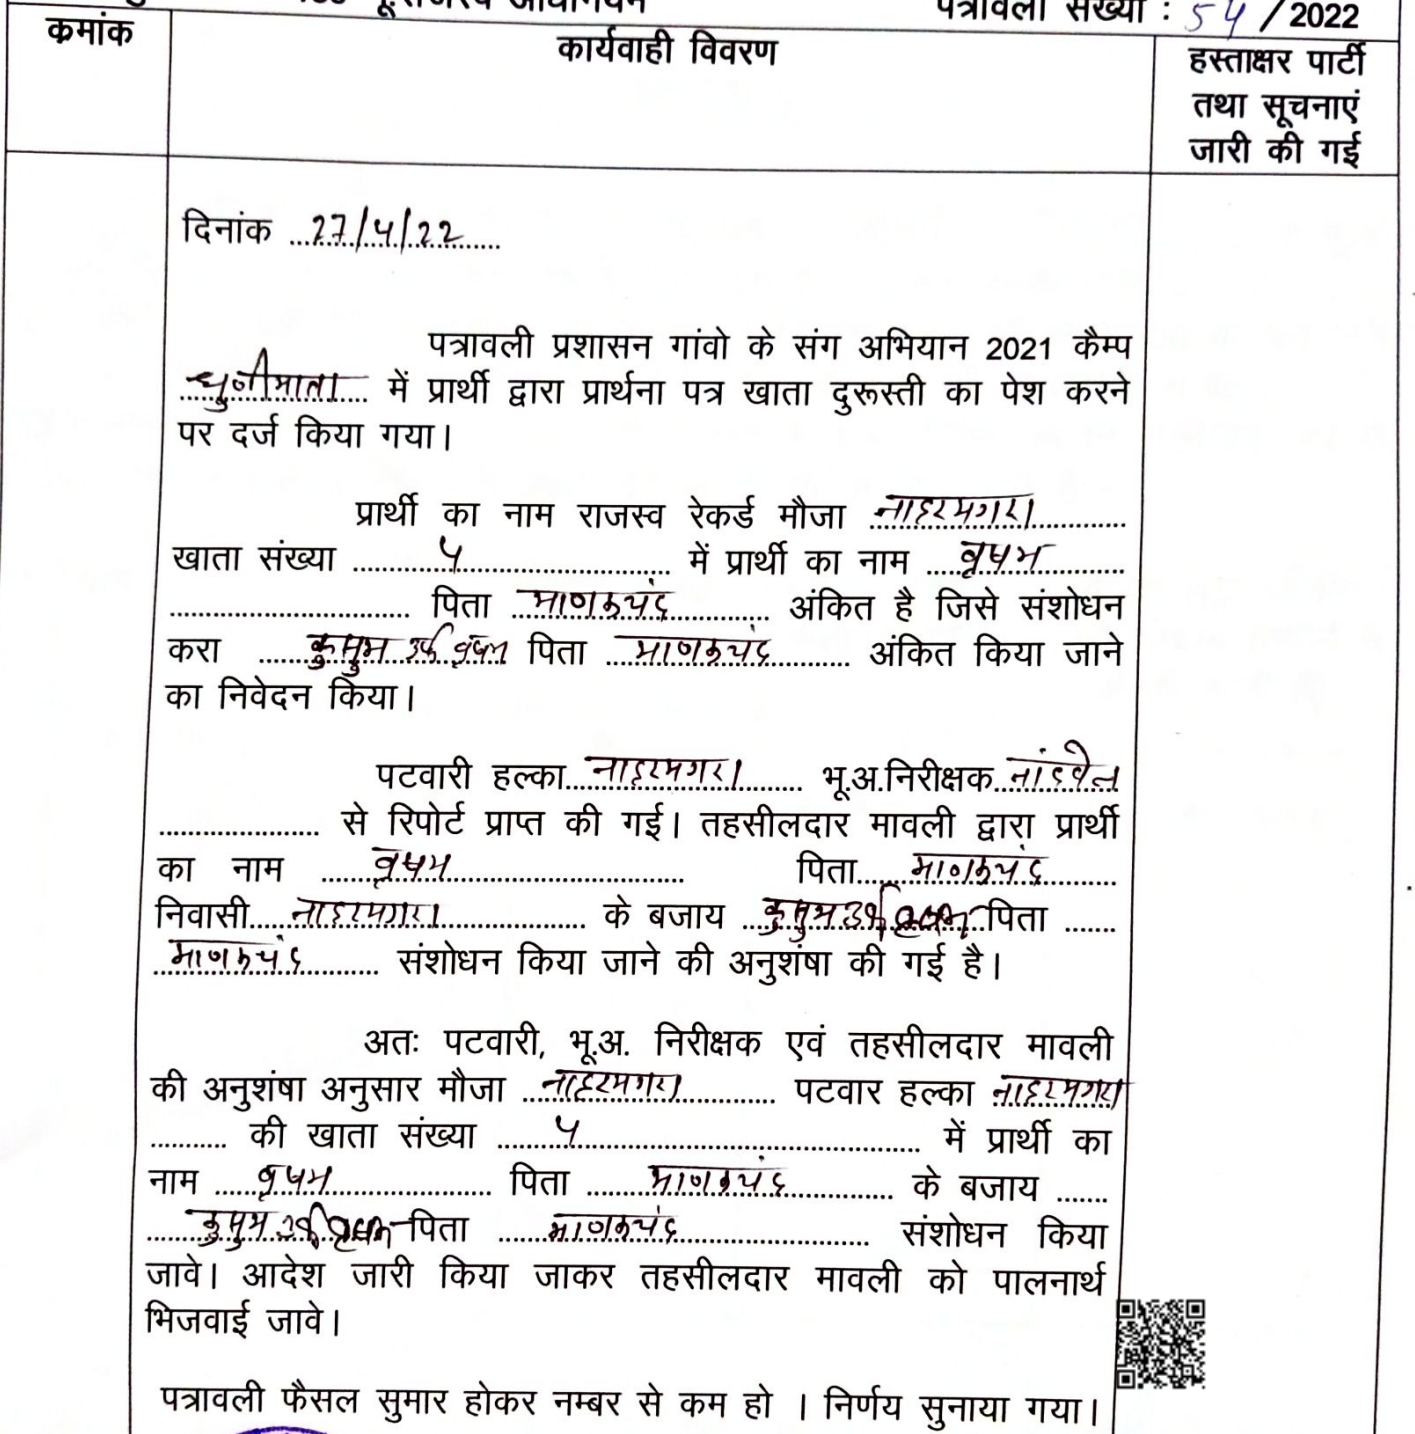 पत्रावली संख्या : 54 / 2022
क्रमांक
कार्यवाही विवरण
हस्ताक्षर पार्टी
तथा सूचनाएं
जारी की गई
दिनांक 27/4/22
पत्रावली प्रशासन गांवो के संग अभियान 2021 कैम्प
धुणीमाता में प्रार्थी द्वारा प्रार्थना पत्र खाता दुरूस्ती का पेश करने
पर दर्ज किया गया।
प्रार्थी का नाम राजस्व रेकर्ड मौजा नाहरमगरा
खाता संख्या 4 में प्रार्थी का नाम वृषभ
पिता माणकचंद अंकित है जिसे संशोधन
करा कुसुम उर्फ वृषभ पिता माणकचंद अंकित किया जाने
का निवेदन किया।
पटवारी हल्का नाहरमगरा भू.अ.निरीक्षक नांदवेल
से रिपोर्ट प्राप्त की गई। तहसीलदार मावली द्वारा प्रार्थी
का नाम वृषभ पिता माणकचंद
निवासी नाहरमगरा के बजाय कुसुम उर्फ वृषभ पिता
माणकचंद संशोधन किया जाने की अनुशंषा की गई है।
अतः पटवारी, भू.अ. निरीक्षक एवं तहसीलदार मावली
की अनुशंषा अनुसार मौजा नाहरमगरा पटवार हल्का नाहरमगरा
की खाता संख्या 4 में प्रार्थी का
नाम वृषभ पिता माणकचंद के बजाय
कुसुम उर्फ वृषभ पिता माणकचंद संशोधन किया
जावे। आदेश जारी किया जाकर तहसीलदार मावली को पालनार्थ
भिजवाई जावे।
पत्रावली फैसल सुमार होकर नम्बर से कम हो । निर्णय सुनाया गया।